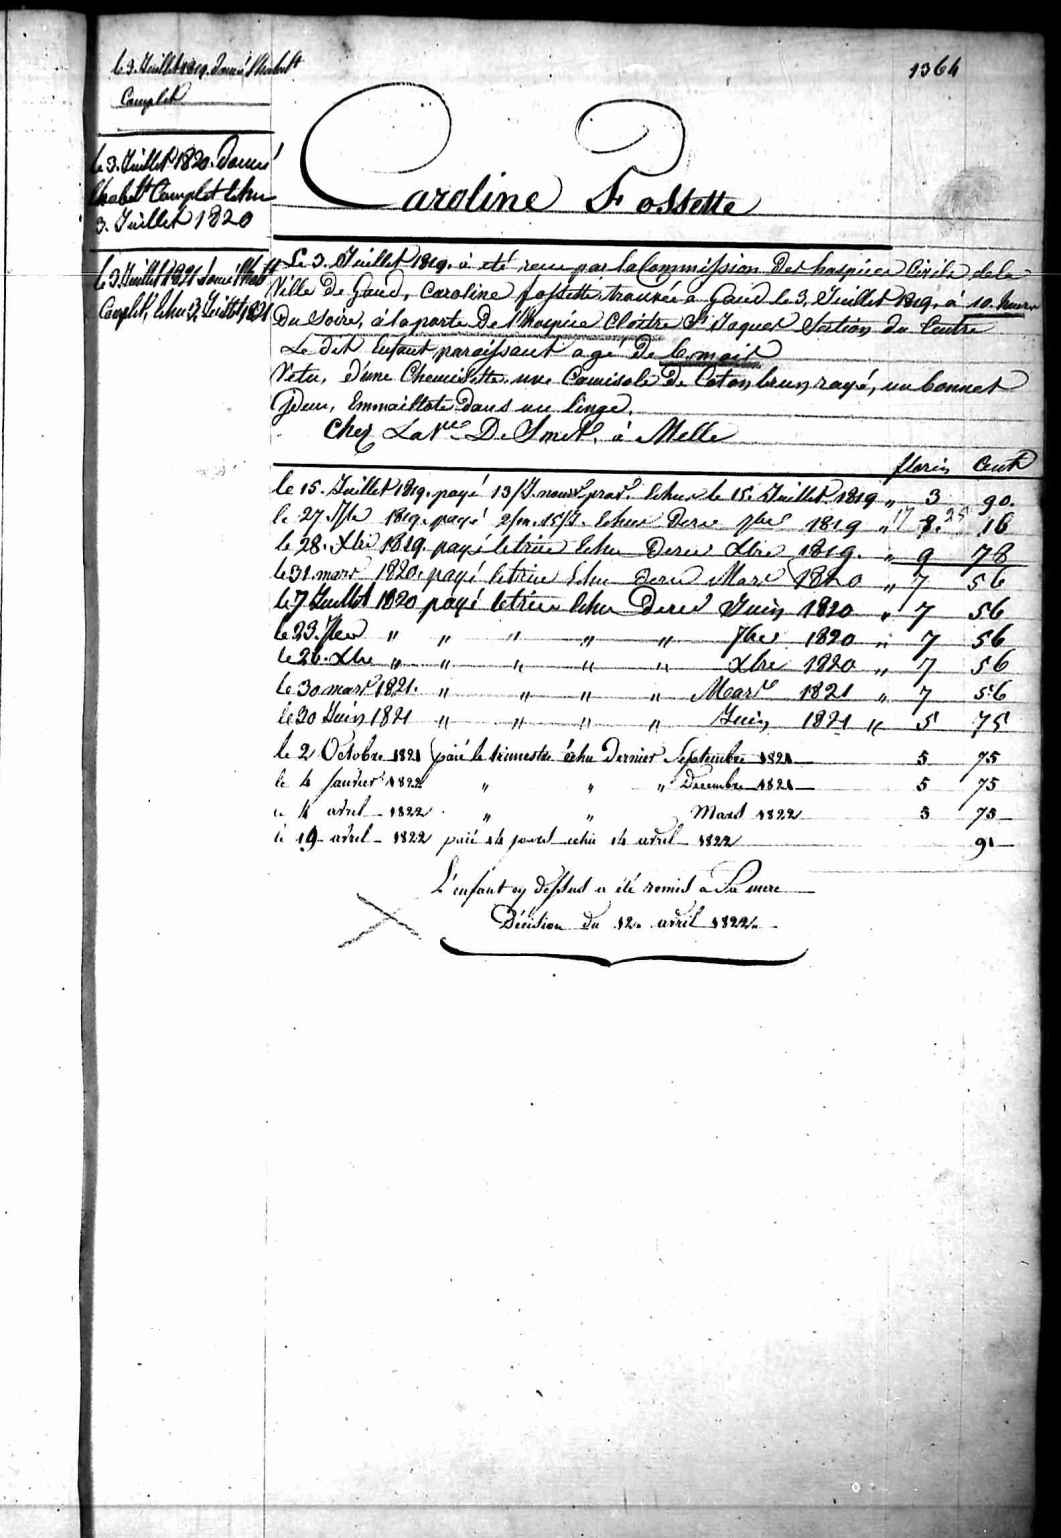 1364
le 3. Juillet 1819. donné l'habillt
Complet
le 3. Juillet 1820. donné
l'habillt Complet Echu
3. Juillet 1820
le 3 Juillet 1821 donné l'habillt
Complet, Echu 3. Juillet 1821
Caroline Fossette
Le 3. Juillet 1819. à eté recu par la Commission Des hospices Civils de la
Ville De Gand, Caroline fossette, trouvée a Gand le 3. Juillet 1819, à 10. heures
Du Soire, à la porte De l'hospice Cloître St Jaques Section du Centre
Le dit Enfant, paraissant agé De 6. mois
Vetu, d'une Chemisette, une Camisole De Coton brun, rayé, un bonnet
Idem, Emmailloté Dans un linge.
Chez La Ve De Smet, à Melle
florin Cents
le 15. Juillet 1819. payé 13/J. nourr. prov. Echus le 15. Juillet 1819 „ 3 90
le 27. 7bre 1819. payé 2/m. 15/J. Echus Dernr 7bre 1819 „ 8. 16
17 25
le 28. Xbre 1819. payé letrim Echu Dernr Xbre 1819. „ 9 78
le 31. mars 1820. payé letrim Echu Dernr Mars 1820 „ 7 56
le 7 Juillet 1820 payé letrim Echu Dernr Juin 1820 „ 7 56
le 23. 7bre „ „ „ „ „ 7bre 1820 „ 7 56
le 26. Xbre „ „ „ „ „ Xbre 1820 „ 7 56
le 30 mars 1821. „ „ „ „ Mars 1821 „ 7 56
le 30 Juin 1821 „ „ „ „ Juin 1821 „ 5 75
le 2 Octobre 1821 paié le trimestre échu Dernier Septembre 1821 5 75
le 4 Janvier 1822 „ „ „ Decembre 1821 5 75
le 4 avril 1822 „ „ Mars 1822 5 75
le 19 avril 1822 paié 14 jours echu 14 avril 1822 91
L'enfant cy dessus a été remis a Sa mere
Décision du 12. avril 1822.